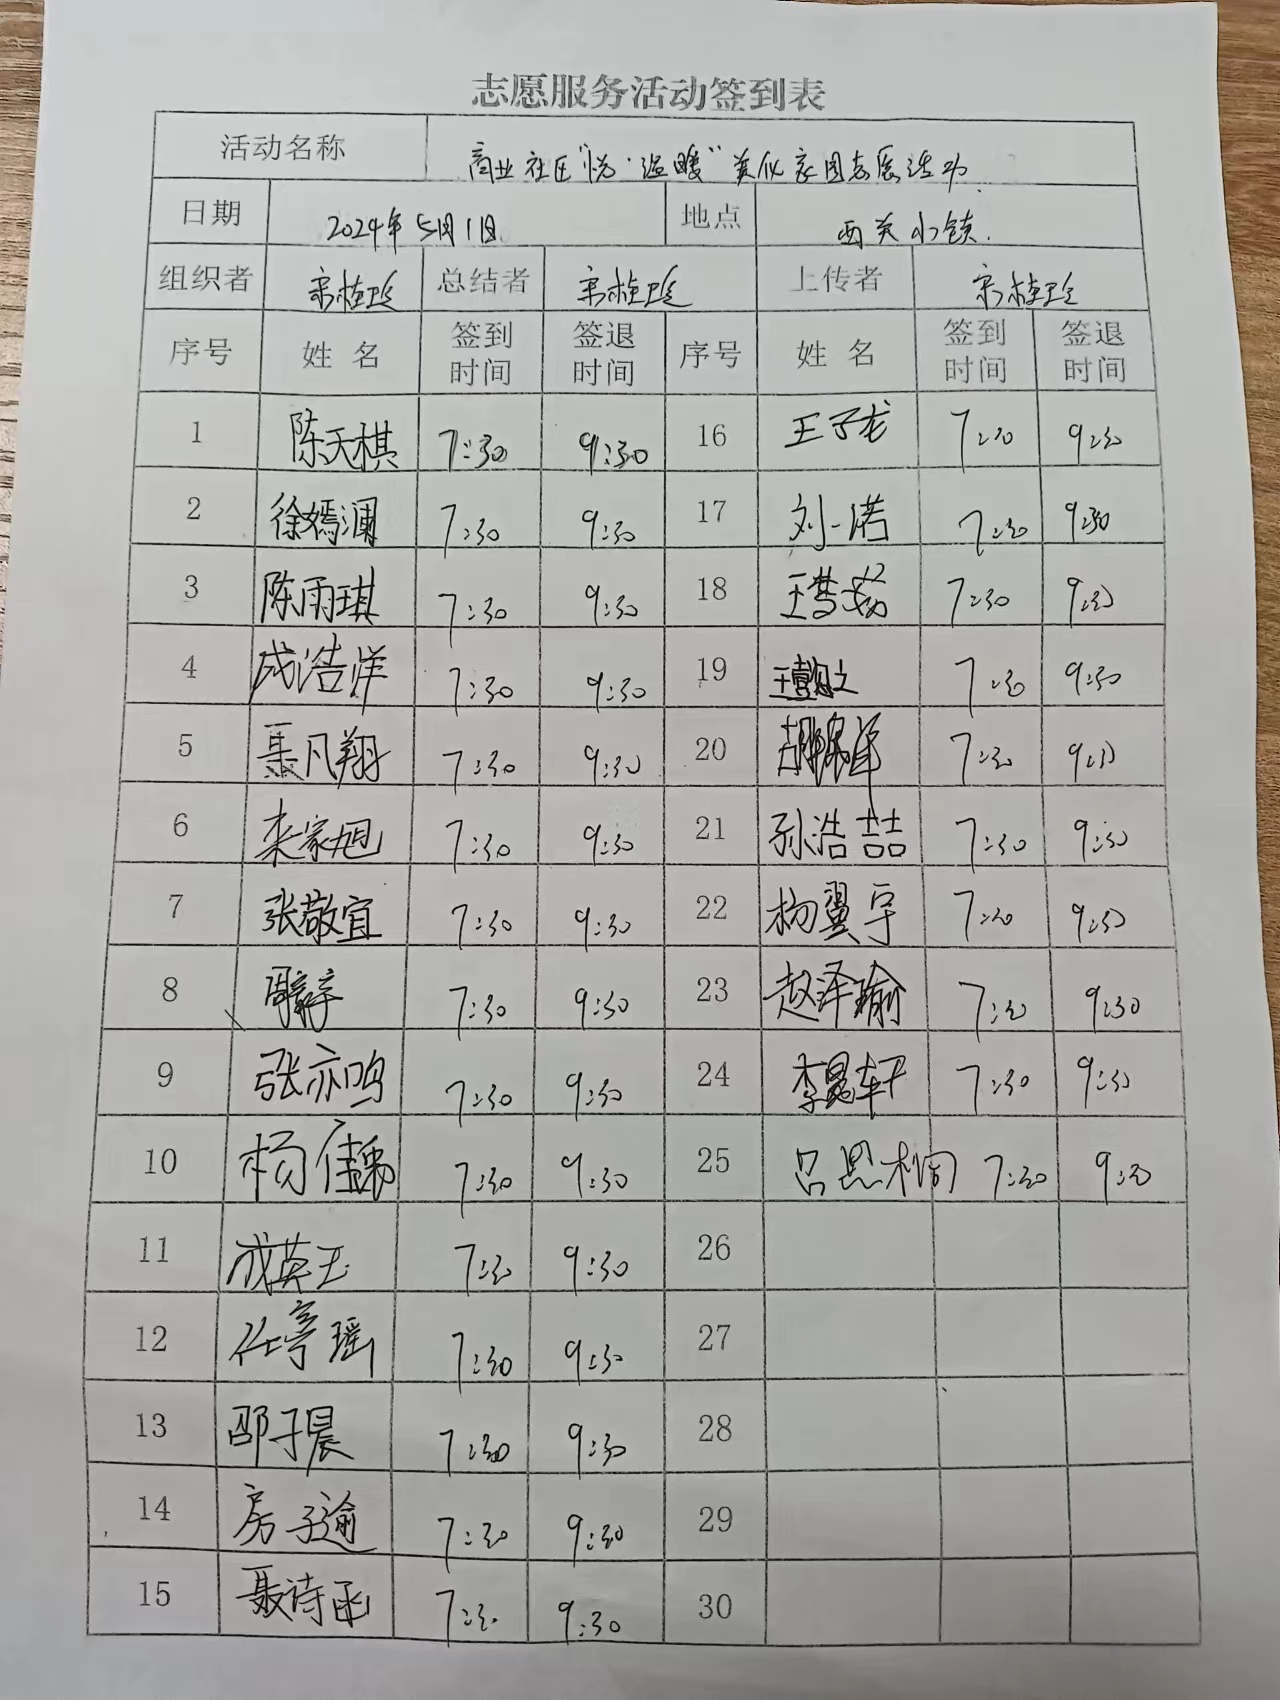 志愿服务活动签到表
活动名称 商业社区"悦·温暖"美化家园志愿活动
日期 2024年5月1日 地点 西关小镇.
组织者 宋桂珍 总结者 宋桂珍 上传者 宋桂珍
序号 姓名 签到时间 签退时间 序号 姓名 签到时间 签退时间
1 陈天棋 7:30 9:30 16 王子龙 7:30 9:30
2 徐嫣澜 7:30 9:30 17 刘一诺 7:30 9:30
3 陈雨琪 7:30 9:30 18 王梦 7:30 9:30
4 成浩洋 7:30 9:30 19 王 7:30 9:30
5 聂凡翔 7:30 9:30 20 胡 7:30 9:30
6 来家旭 7:30 9:30 21 孙浩喆 7:30 9:30
7 张敬宜 7:30 9:30 22 杨翼宇 7:30 9:30
8 周 7:30 9:30 23 赵泽瑜 7:30 9:30
9 张亦鸣 7:30 9:30 24 李昆轩 7:30 9:30
10 杨佳 7:30 9:30 25 吕思桐 7:30 9:30
11 成英玉 7:30 9:30 26
12 任亭瑶 7:30 9:30 27
13 邵子晨 7:30 9:30 28
14 房子逾 7:30 9:30 29
15 聂诗函 7:30 9:30 30